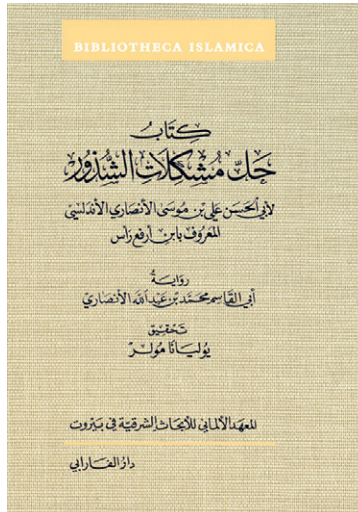 BIBLIOTHECA ISLAMICA
كِتَابُ
حَلّ مُشْكِلَاتِ الشُّذُورِ
لأبي الحَسَن علي بن مُوسَى الأنصَاري الأندلسيّ
المَعرُوف بابن أرفع رَأس
روَايَةُ
أبي القَاسِم محَمَّد بن عَبد الله الأنصَاريّ
تَحقيق
يُوليَانَا مُولِر
المَعهَد الألمَاني للأبحَاث الشرقيّة في بَيرُوت
دَارُ الفَارَابي